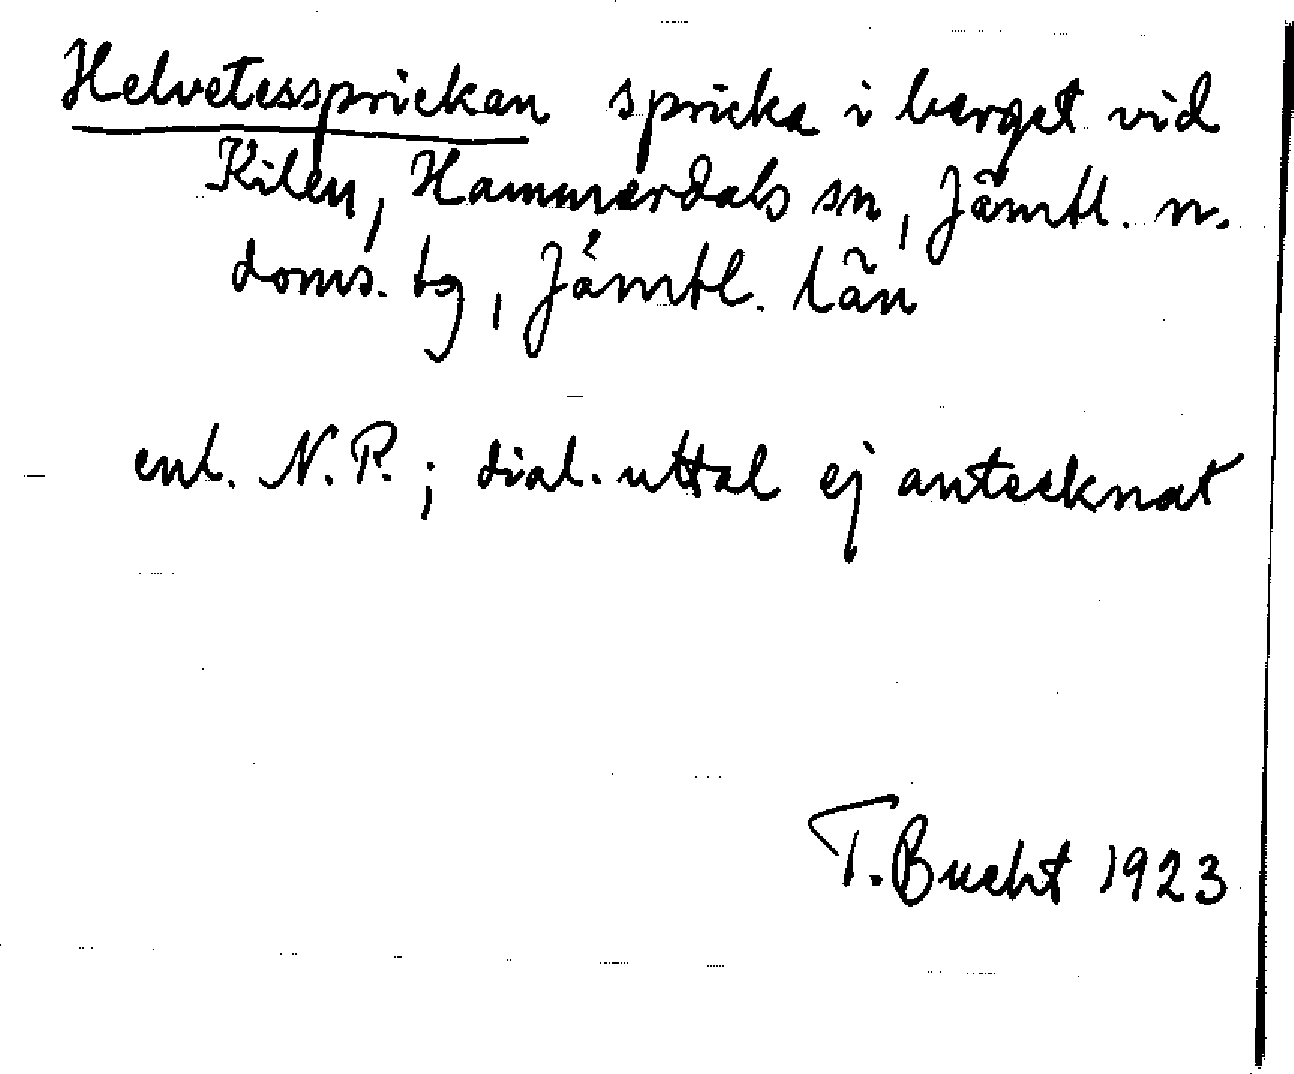 Helvetessprickan spricka i berget vid
Kilen, Hammerdals sn, Jämtl. n.
doms. tg, Jämtl. län
enl. N. P.; dial. uttal ej antecknat
T. Bucht 1923